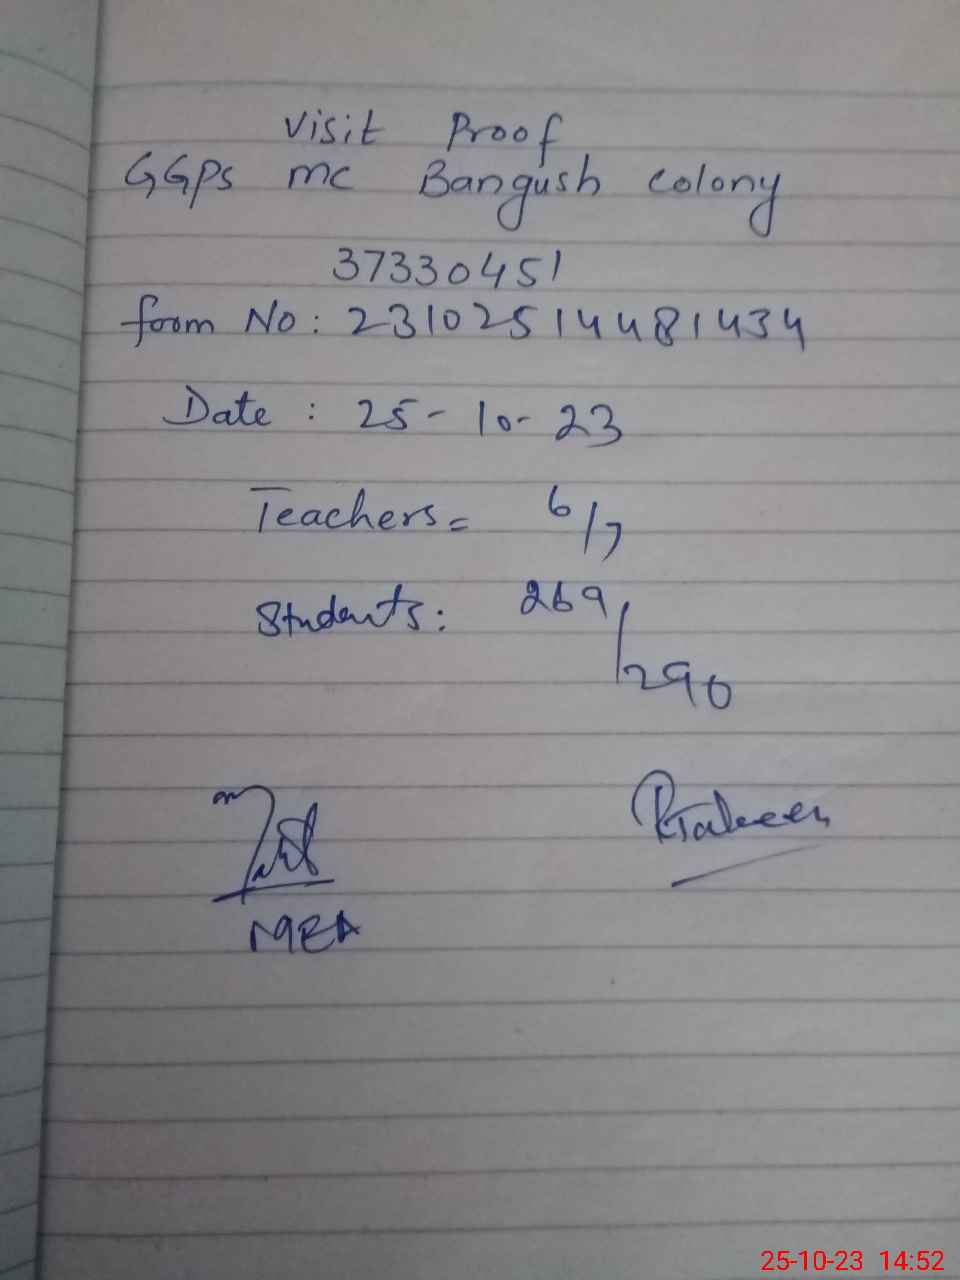 Visit Proof
GGPS mc Bangush colony
37330451
form No: 23102514481434
Date : 25-10-23
Teachers = 6/7
Students: 269/290
MEA
25-10-23 14:52